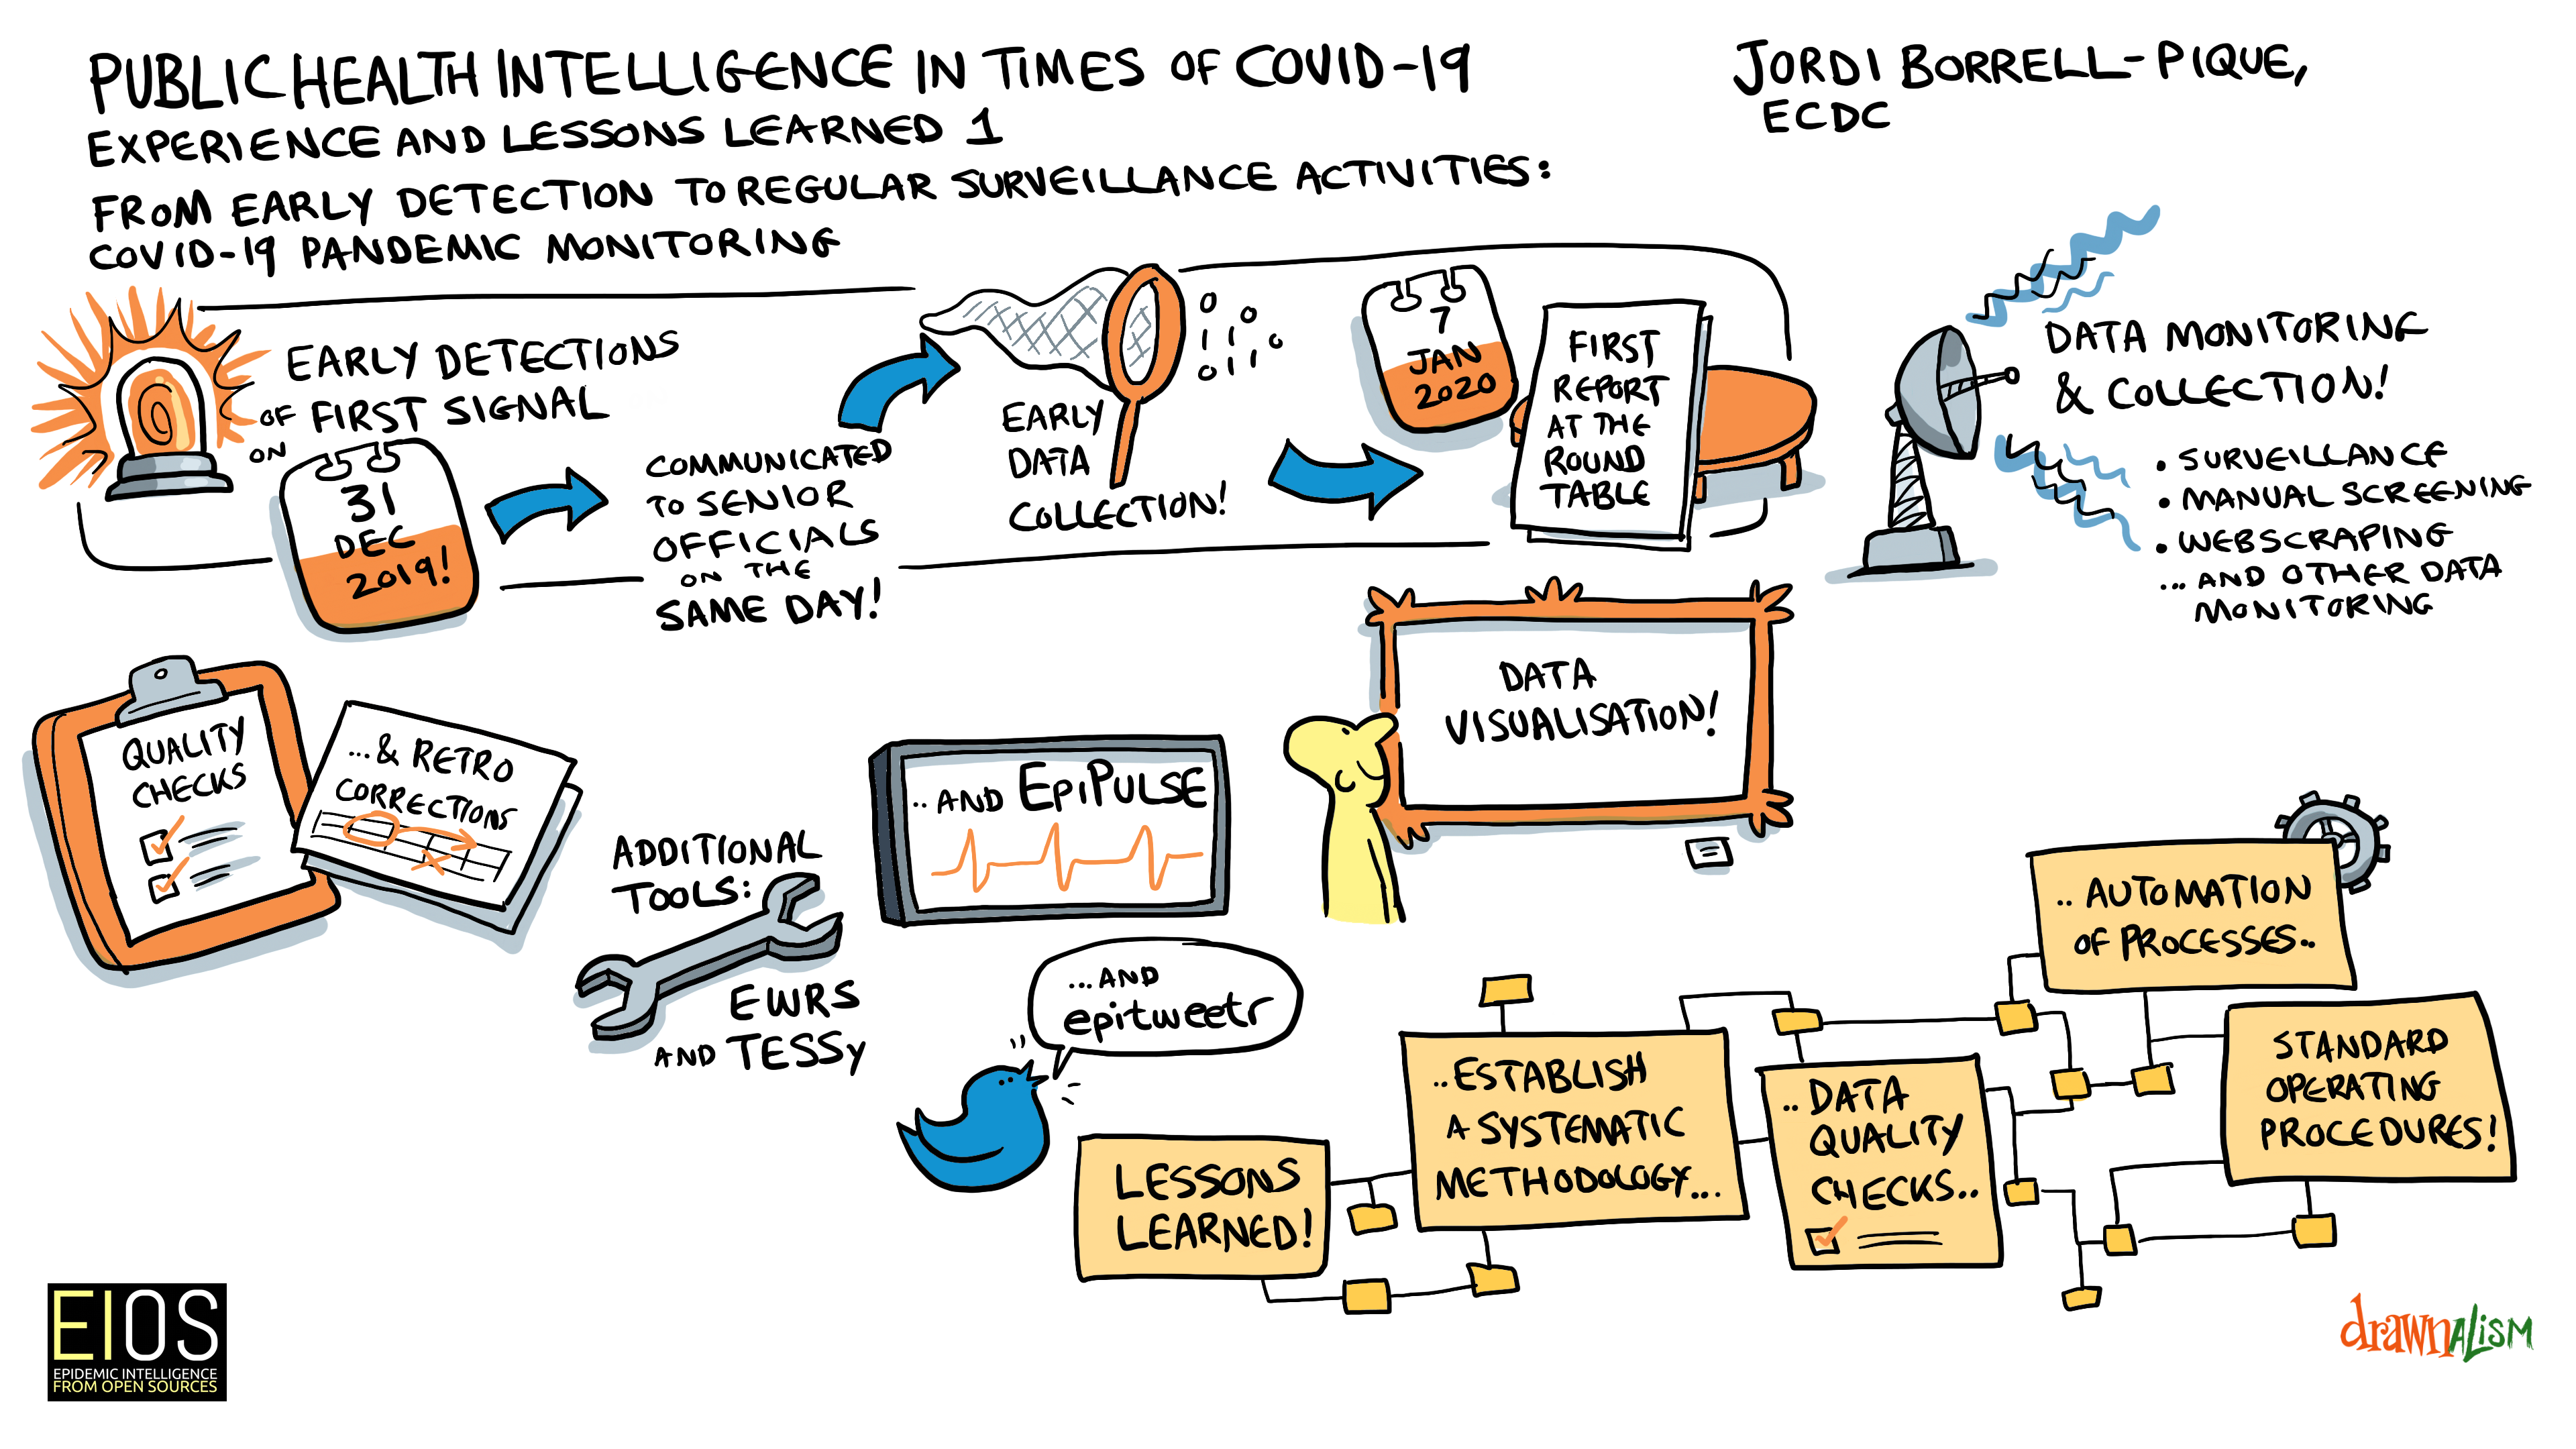 PUBLIC HEALTH INTELLIGENCE IN TIMES OF COVID-19
EXPERIENCE AND LESSONS LEARNED 1
FROM EARLY DETECTION TO REGULAR SURVEILLANCE ACTIVITIES:
COVID-19 PANDEMIC MONITORING
JORDI BORRELL-PIQUE,
ECDC
EARLY DETECTIONS
OF FIRST SIGNAL
ON
31
DEC
2019!
COMMUNICATED
TO SENIOR
OFFICIALS
ON THE
SAME DAY!
EARLY
DATA
COLLECTION!
0 0
1 1 0
0 1 1
7
JAN
2020
FIRST
REPORT
AT THE
ROUND
TABLE
DATA MONITORING
& COLLECTION!
• SURVEILLANCE
• MANUAL SCREENING
• WEBSCRAPING
... AND OTHER DATA
MONITORING
QUALITY
CHECKS
...& RETRO
CORRECTIONS
ADDITIONAL
TOOLS:
EWRS
AND TESSy
..AND EPIPULSE
...AND
epitweetr
DATA
VISUALISATION!
LESSONS
LEARNED!
..ESTABLISH
A SYSTEMATIC
METHODOLOGY...
..DATA
QUALITY
CHECKS..
..AUTOMATION
OF PROCESSES..
STANDARD
OPERATING
PROCEDURES!
EIOS
EPIDEMIC INTELLIGENCE
FROM OPEN SOURCES
drawnALiSM